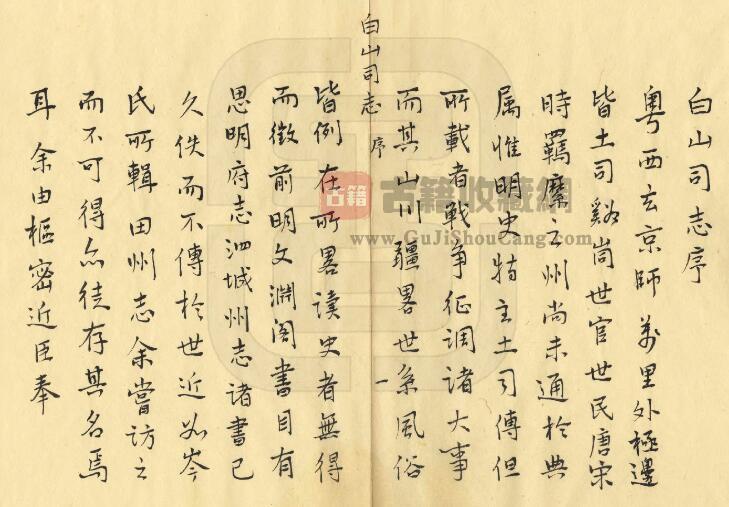 白山司志序
粤西去京師萬里外極邊
皆土司谿峝世官世民唐宋
時羈縻之州尚未通於典
属惟明史特立土司傳但
所載者戦争征調諸大事
而其山川疆畧世系風俗
白山司志
序
一
皆例在所畧讀史者無得
而徵前明文淵阁書目有
思明府志泗城州志諸書已
久佚而不傳於世近如岑
氏所輯田州志余嘗訪之
而不可得亦徒存其名焉
耳余由樞密近臣奉
古籍
古籍收藏網
www.GuJiShouCang.com